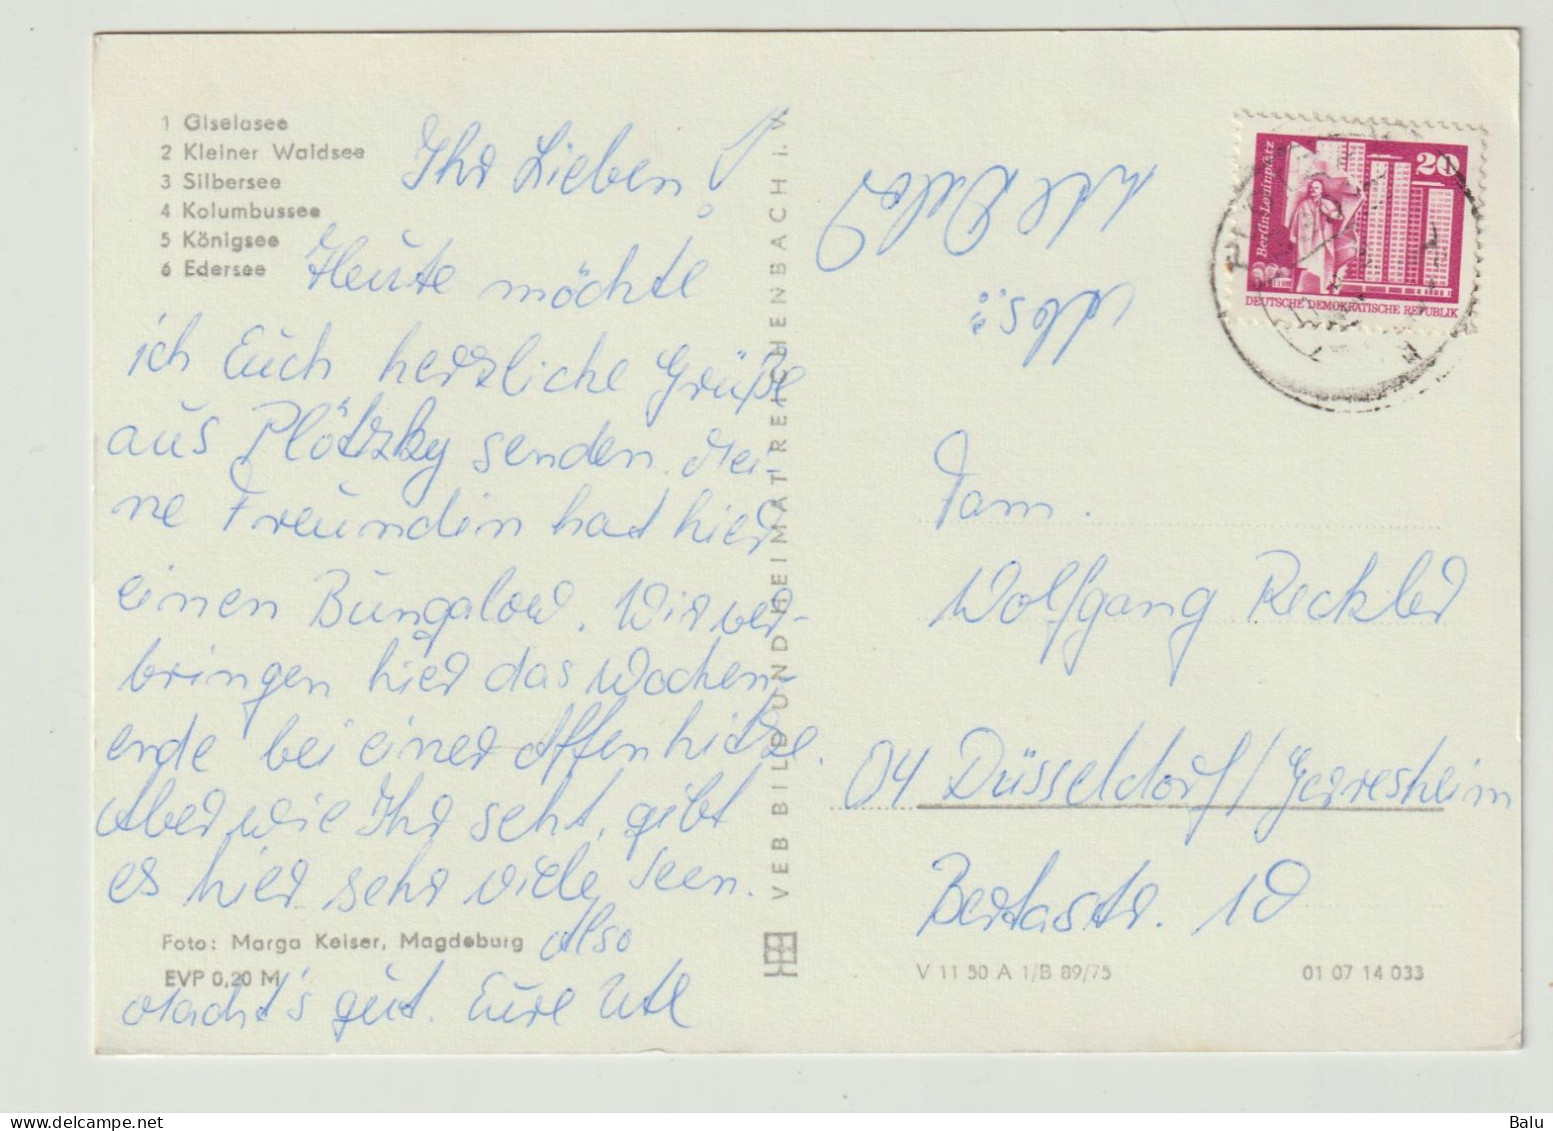 1 Giselasee
2 Kleiner Waldsee
3 Silbersee
4 Kolumbussee
5 Königsee
6 Edersee
Ihr Lieben!
Heute möchte
ich Euch herzliche Grüße
aus Plötzky senden. Mei-
ne Freundin hat hier
einen Bungalow. Wir ver-
bringen hier das Wochen-
ende bei einer Affenhitze.
Aber wie Ihr seht, gibt
es hier sehr viele Seen.
Also
Macht's gut. Eure Ute
Foto: Marga Keiser, Magdeburg
EVP 0,20 M
VEB BILD UND HEIMAT REICHENBACH i. V.
Abs.:
20
Berlin-Leninplatz
DEUTSCHE DEMOKRATISCHE REPUBLIK
Fam.
Wolfgang Reckler
04 Düsseldorf/Gerresheim
Bertastr. 10
V 11 50 A 1/B 89/75
01 07 14 033
Balu